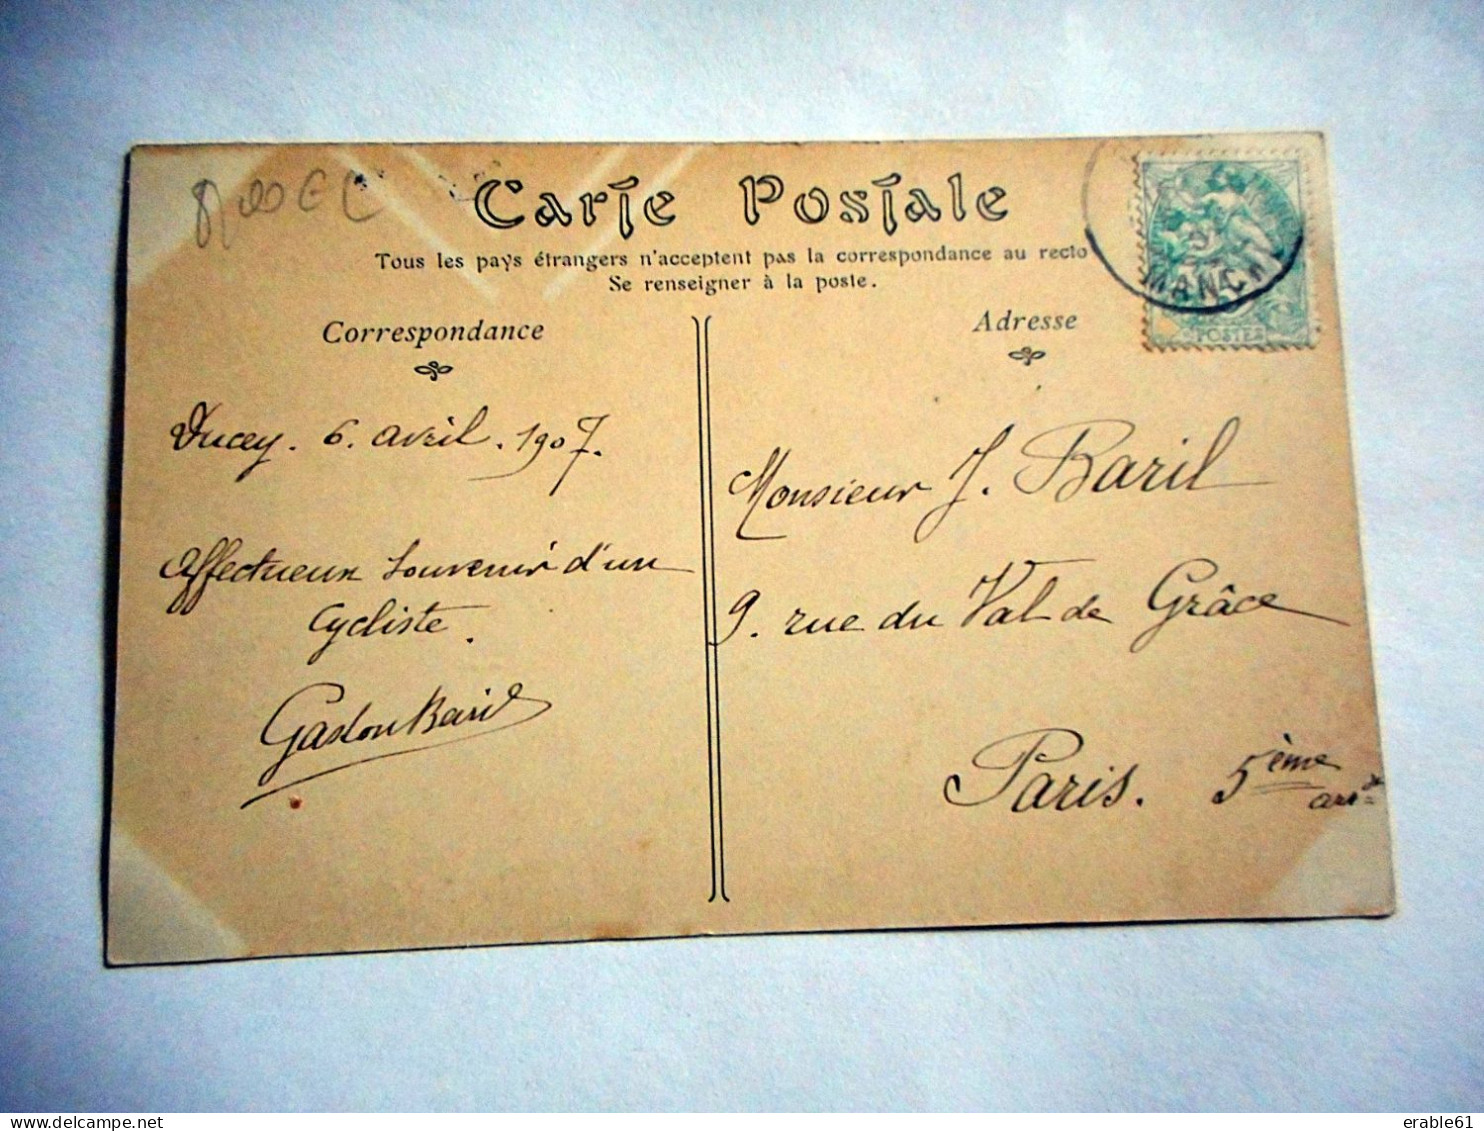 8,00 €
Carte Postale
Tous les pays étrangers n'acceptent pas la correspondance au recto
Se renseigner à la poste.
Correspondance
Adresse
MANCHE
POSTES
Ducey. 6. avril. 1907.
Affectueux souvenir d'un
cycliste.
Gaston Baril
Monsieur J. Baril
9. rue du Val de Grâce
Paris. 5ème
arrt
erable61